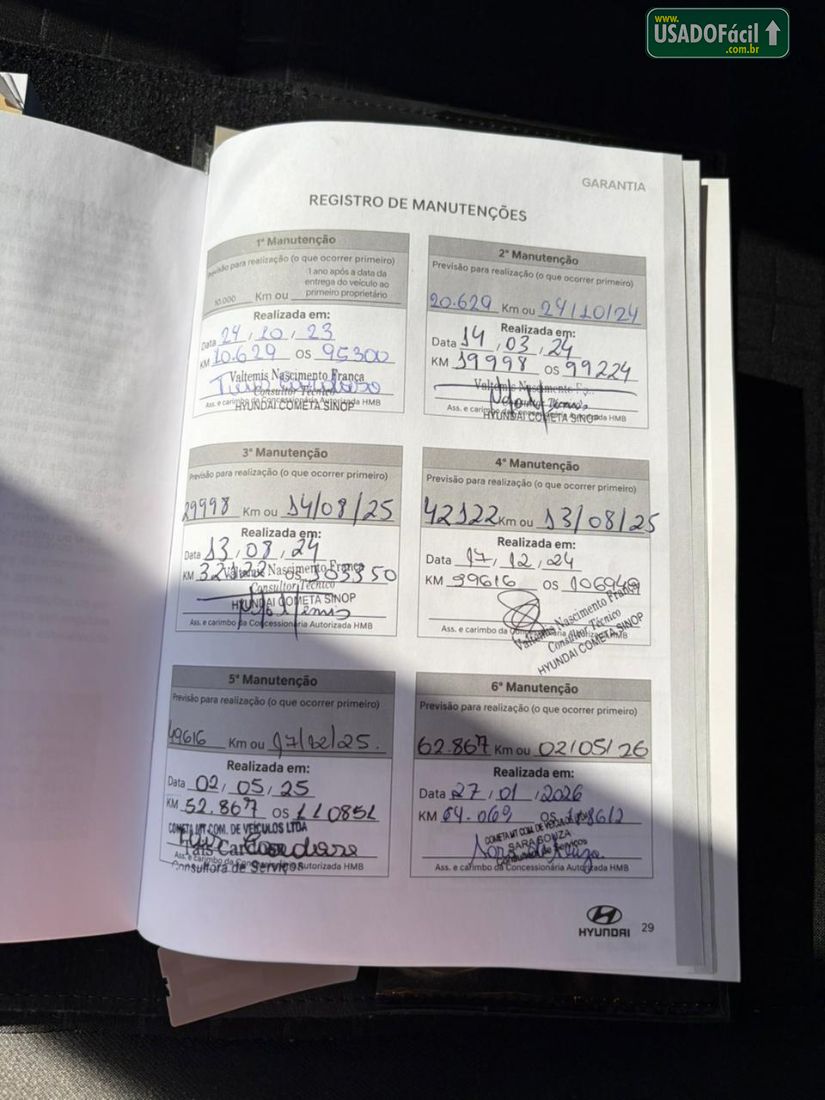 www.
USADOFácil
.com.br
GARANTIA
REGISTRO DE MANUTENÇÕES
1ª Manutenção
Previsão para realização (o que ocorrer primeiro)
10.000 Km ou 1 ano após a data da entrega do veículo ao primeiro proprietário
Realizada em:
Data 24, 10, 23
KM 10.629 OS 95300
Valtemis Nascimento França
Consultor Técnico
Ass. e carimbo da Concessionária Autorizada HMB
HYUNDAI COMETA SINOP
2ª Manutenção
Previsão para realização (o que ocorrer primeiro)
20.629 Km ou 24/10/24
Realizada em:
Data 14, 03, 24
KM 19998 OS 99224
Valtemis Nascimento
Ass. e carimbo
HYUNDAI COMETA SINOP
3ª Manutenção
Previsão para realização (o que ocorrer primeiro)
29998 Km ou 14/08/25
Realizada em:
Data 13, 08, 24
KM 32122 OS 103350
Valtemis Nascimento França
Consultor Técnico
HYUNDAI COMETA SINOP
Ass. e carimbo da Concessionária Autorizada HMB
4ª Manutenção
Previsão para realização (o que ocorrer primeiro)
42122 Km ou 13/08/25
Realizada em:
Data 17, 12, 24
KM 39616 OS
Ass. e carimbo da
Valtemis Nascimento França
Consultor Técnico
HYUNDAI COMETA SINOP
5ª Manutenção
Previsão para realização (o que ocorrer primeiro)
49616 Km ou 17/12/25.
Realizada em:
Data 02, 05, 25
KM 52.867 OS 110851
COMETA MT COM. DE VEÍCULOS LTDA
Tais Cardoso
Consultora de Serviços
Autorizada HMB
6ª Manutenção
Previsão para realização (o que ocorrer primeiro)
62.867 Km ou 02/05/26
Realizada em:
Data 27, 01, 2026
KM 64.069 OS
COMETA MT COM. DE VEÍCULOS
SARA SOUZA
Consultora de Serviços
Ass. e carimbo da Concessionária Autorizada HMB
HYUNDAI
29